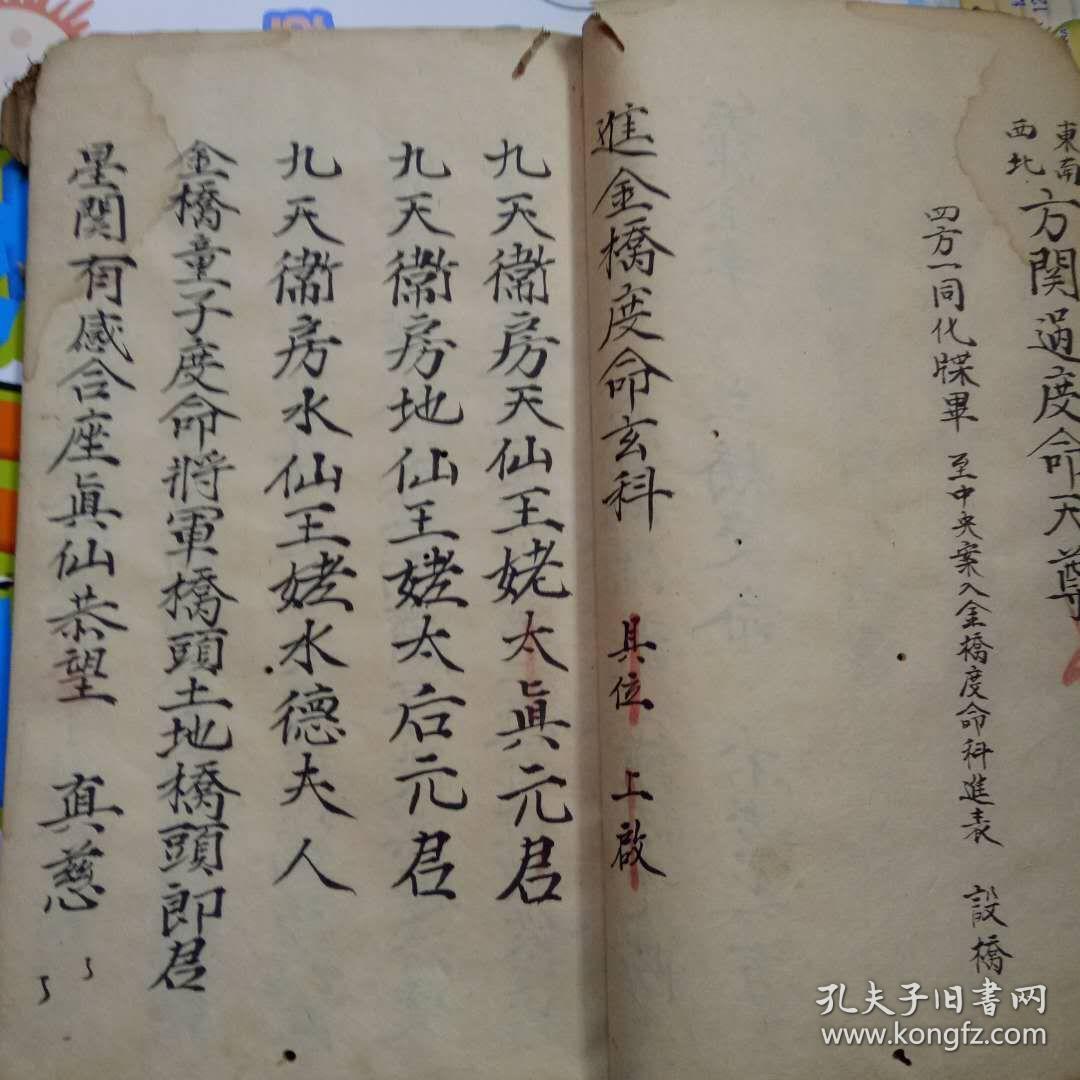 東南西北方関過度命天尊
四方一同化牒畢 至中央案入金橋度命科進表 設橋
進金橋度命玄科 具位 上啟
九天衛房天仙王姥太眞元君
九天衛房地仙王姥太后元君
九天衛房水仙王姥水德夫人
金橋童子度命將軍橋頭土地橋頭郎君
星関有感合座眞仙恭望 真慈
孔夫子旧书网
www.kongfz.com